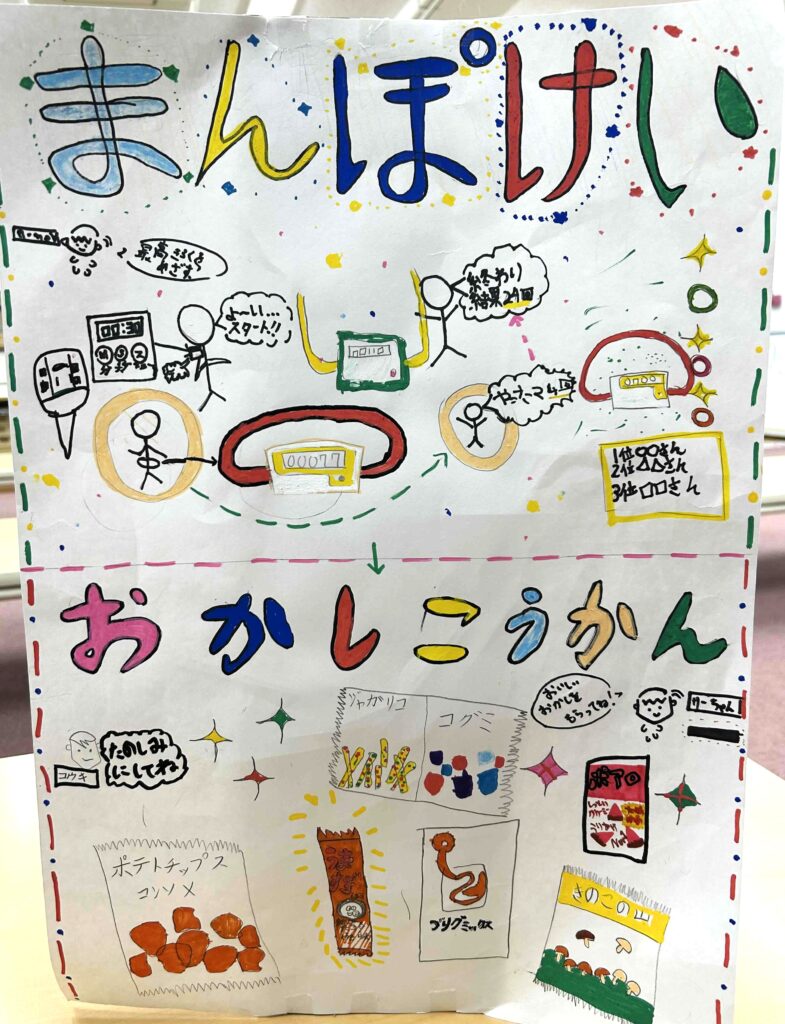 まんぽけい
りーちゃん
最高きろくを
めざせ
00:30
M S ス
よ〜い…
スタート!!
終わり
結果29回
00077
やったーマ
1位〇〇さん
2位△△さん
3位□□さん
おかしこうかん
おいしい
おかしを
もらってね!
りーちゃん
たのしみ
にしてね
コウキ
ジャガリコ
コグミ
ポテトチップス
コンソメ
うまい
プリグミックス
きのこの山